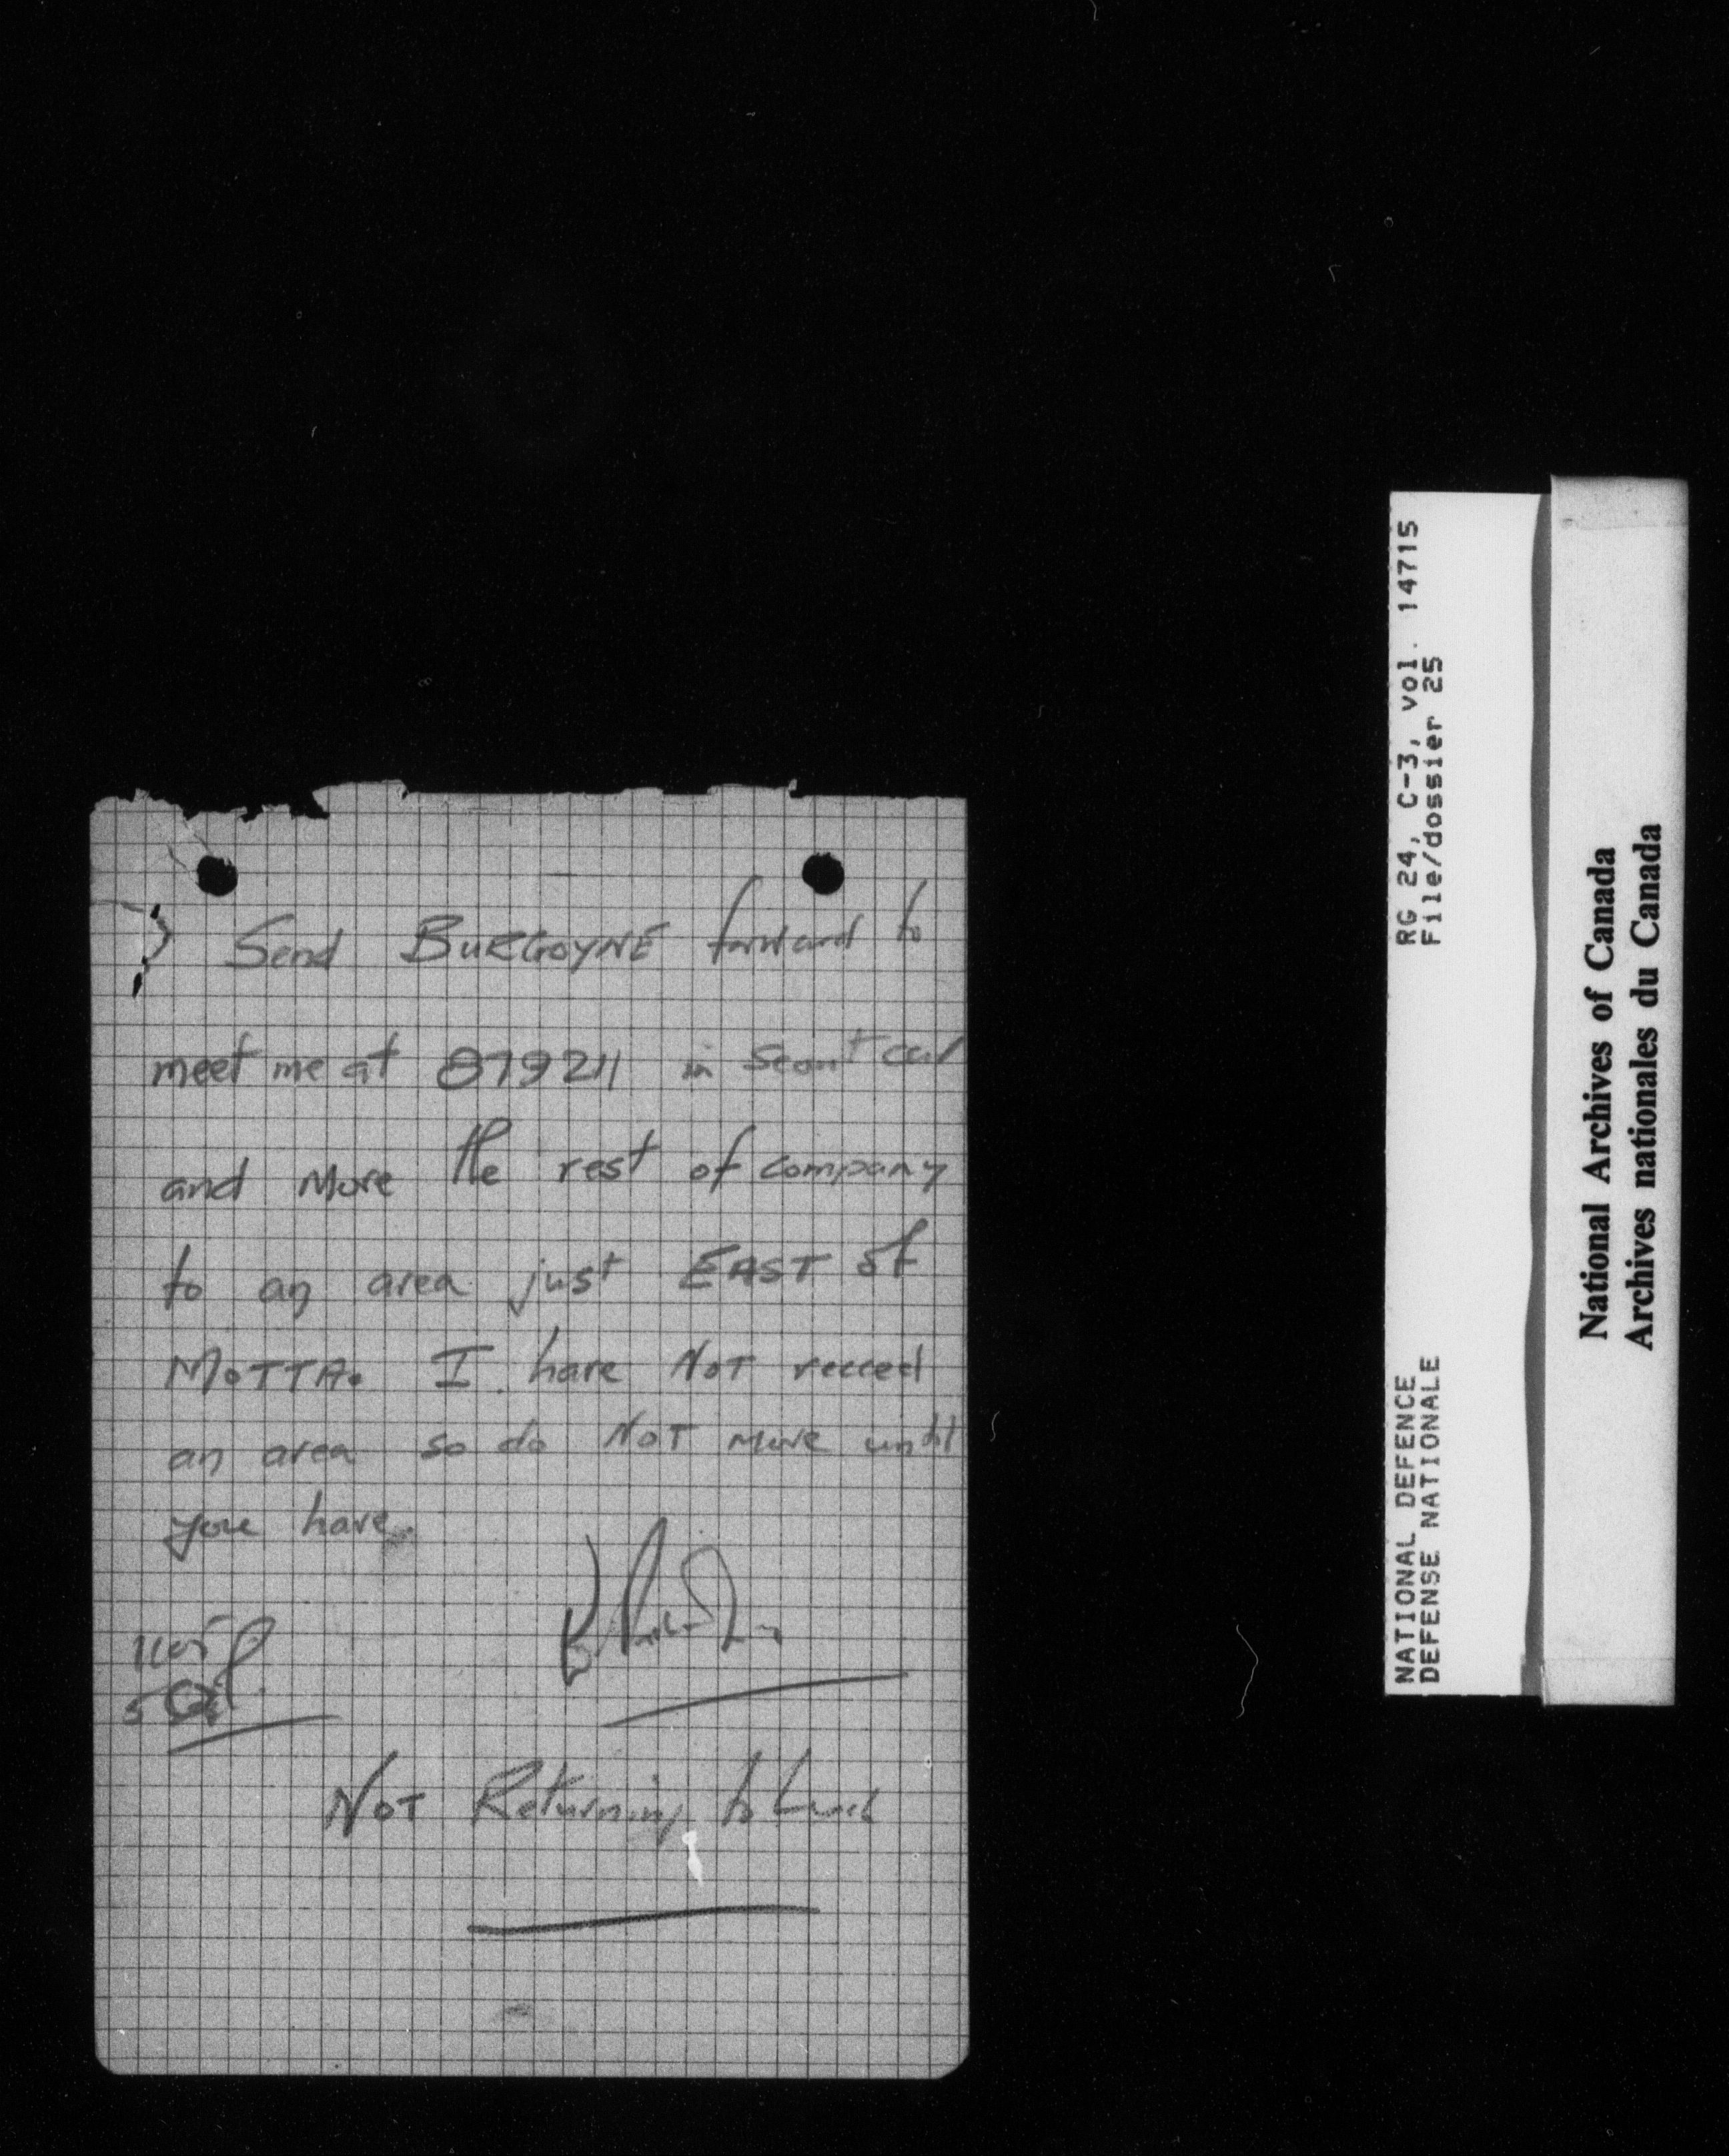 Send BURGOYNE forward to
meet me at 879211 in Scout car
and Move the rest of company
to an area just EAST of
MOTTA. I have NOT recced
an area so do NOT move until
you have.
1105
5
NOT Returning to Lunch
RG 24, C-3, vol. 14715
File/dossier 25
NATIONAL DEFENCE
DEFENSE NATIONALE
National Archives of Canada
Archives nationales du Canada